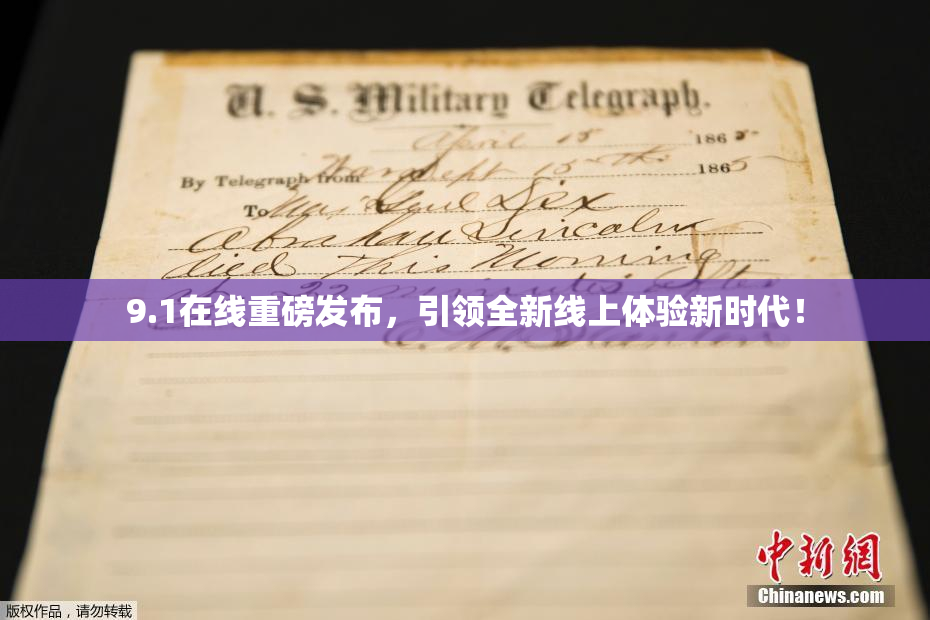 U. S. Military Telegraph.
April 15 1865
By Telegraph from War Dept 15th 1865
To Maj Genl Dix
Abraham Lincoln
died This Morning
at 22 minutes after
9.1在线重磅发布，引领全新线上体验新时代！
E. M. Stanton
中新网
Chinanews.com
版权作品，请勿转载